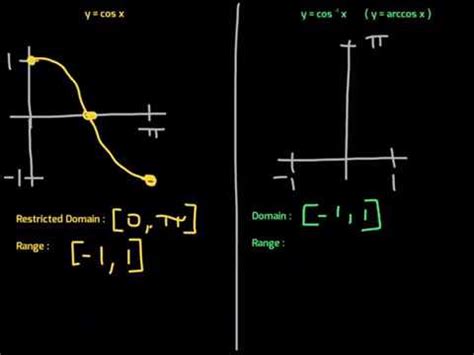 y = cos x
1
π
-1
Restricted Domain : [0, π]
Range : [-1, 1]
y = cos⁻¹ x ( y = arccos x )
π
-1 1
Domain : [-1, 1]
Range :